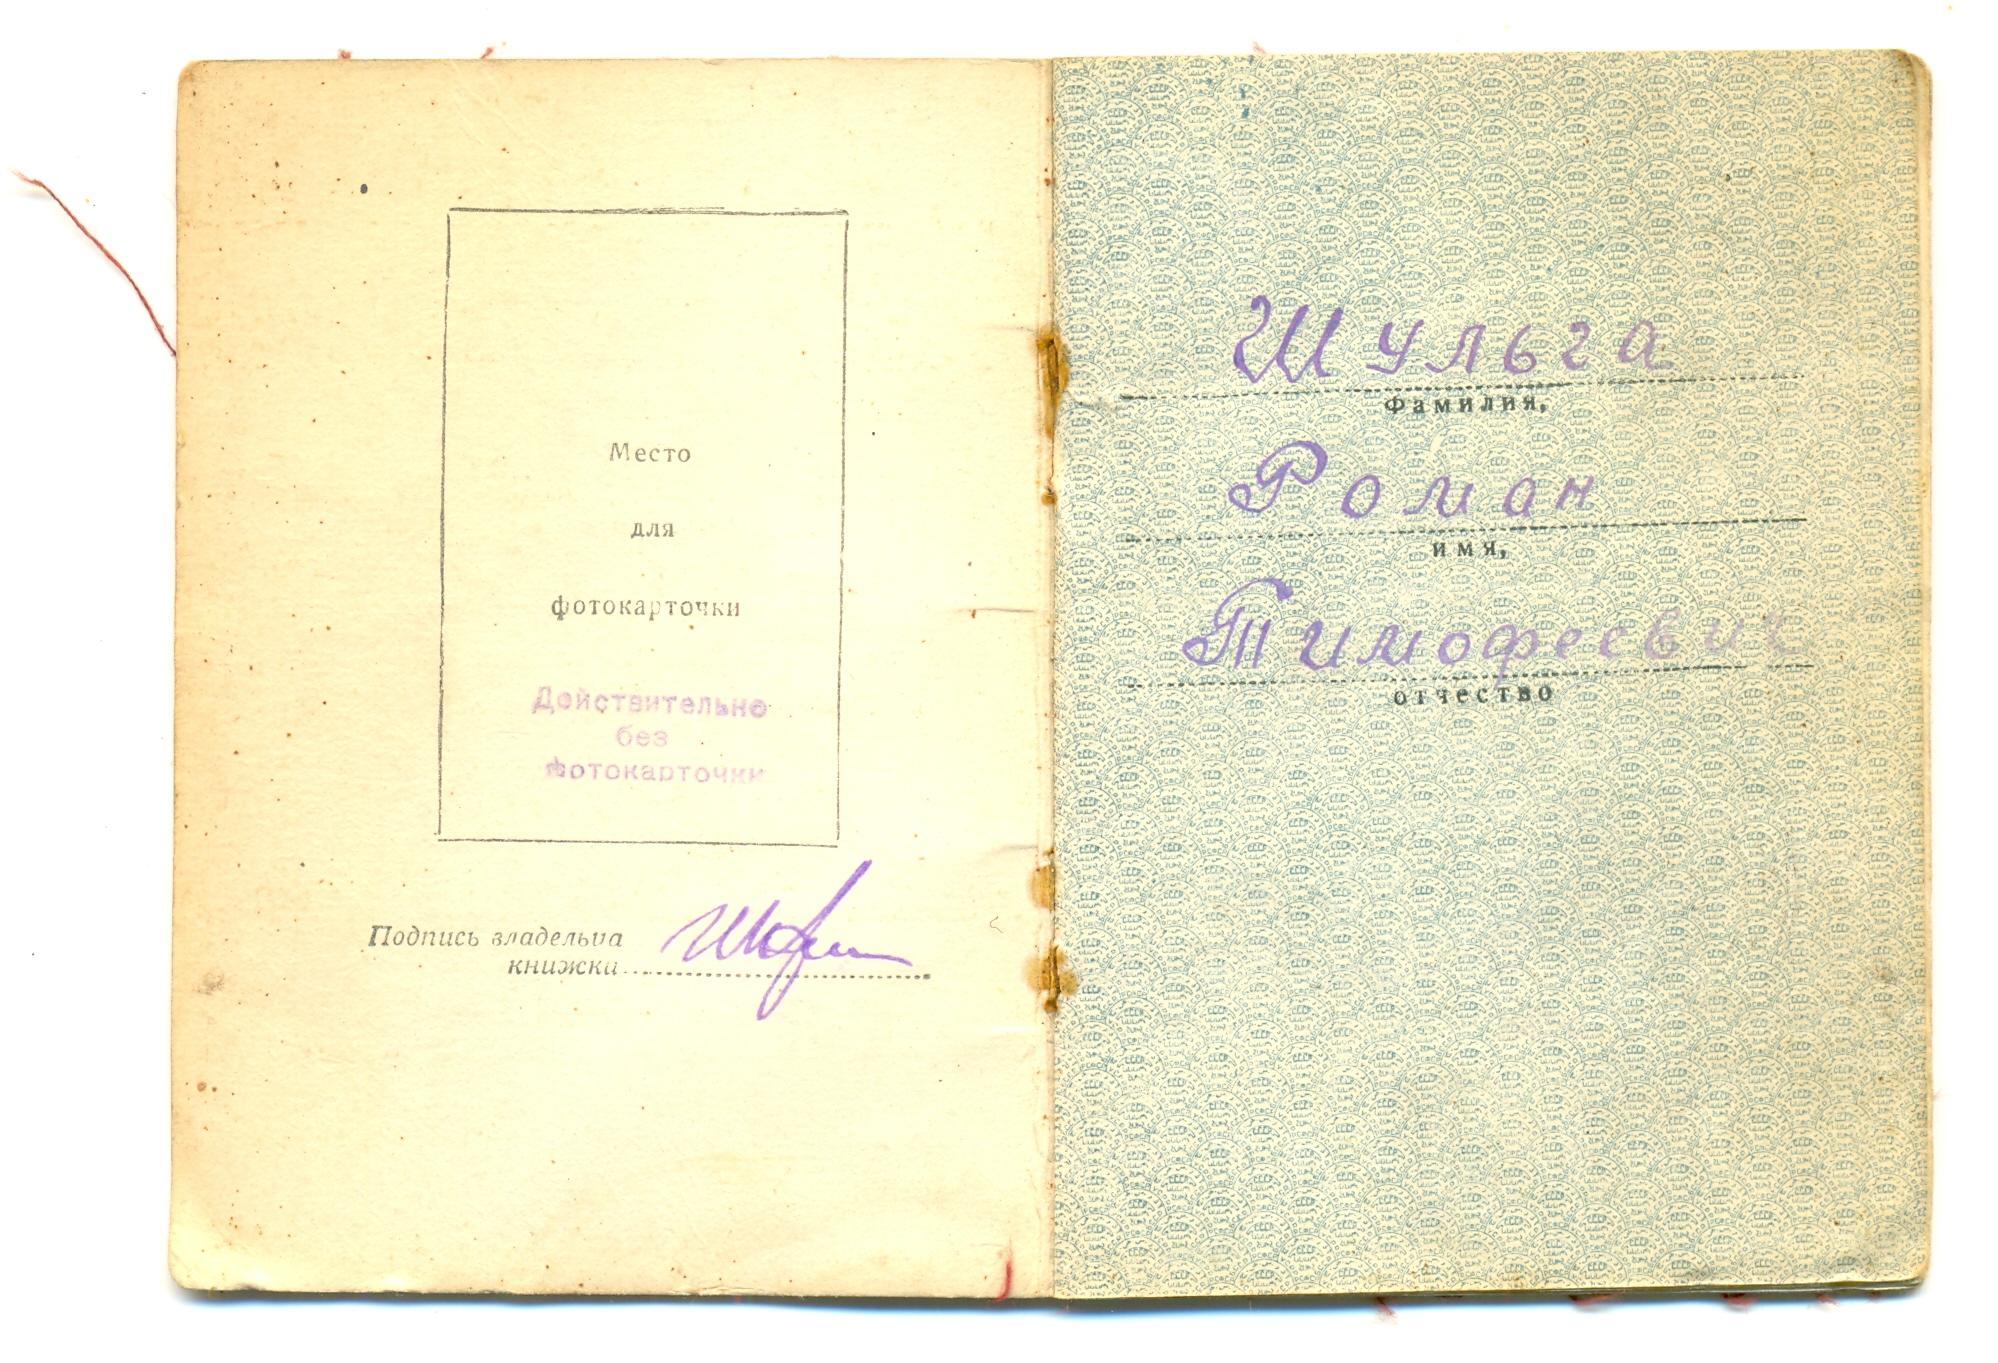 Место
для
фотокарточки
Действительно
без
фотокарточки
Подпись владельца
книжки
Шульга
Фамилия,
Роман
имя,
Тимофеевич
отчество